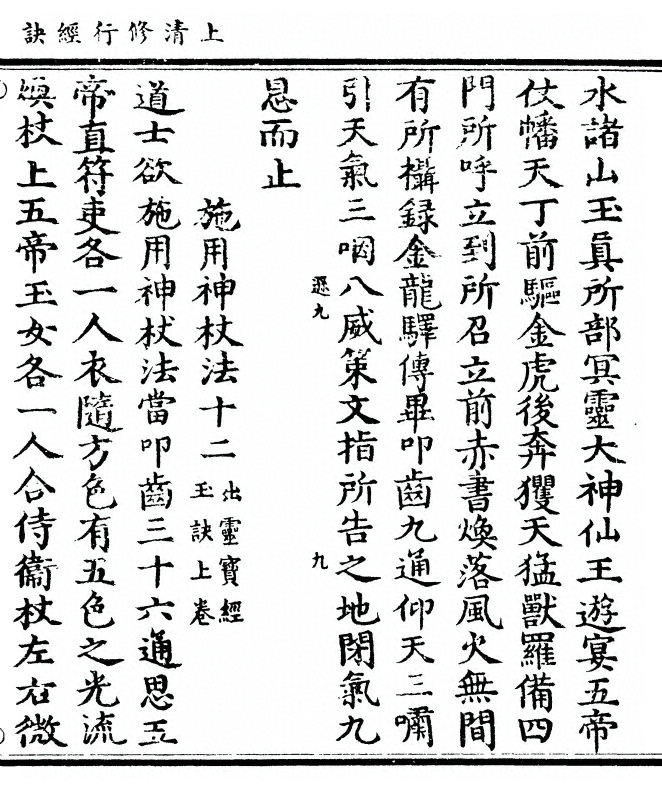 上清修行經訣
水諸山玉眞所部冥靈大神仙王遊宴五帝
仗幡天丁前驅金虎後奔玃天猛獸羅備四
門所呼立到所召立前赤書煥落風火無間
有所攝録金龍驛傳畢叩齒九通仰天三嘯
引天氣三咽八威策文指所告之地閉氣九
遜九 九
息而止
施用神杖法十二
出靈寶經
玉訣上卷
道士欲施用神杖法當叩齒三十六通思五
帝直符吏各一人衣隨方色有五色之光流
煥杖上五帝玉女各一人合侍衞杖左右微